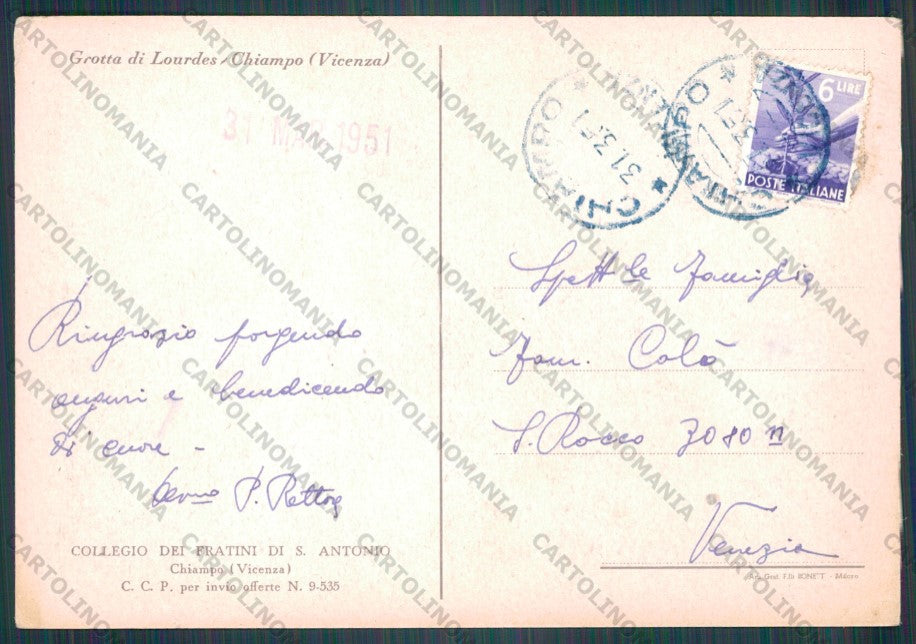 Grotta di Lourdes - Chiampo (Vicenza)
31 MAR 1951
CHIAMPO
31.3.51
CHIAMPO
6 LIRE
POSTE ITALIANE
Ringrazio porgendo
auguri e benedicendo
di cuore -
P. Rettore
COLLEGIO DEI FRATINI DI S. ANTONIO
Chiampo (Vicenza)
C. C. P. per invio offerte N. 9-535
Spett le Famiglia
Fam. Colà
S. Rocco 3080 n
Venezia
Arti Graf. F.lli BONETT - Milano
CARTOLINOMANIA